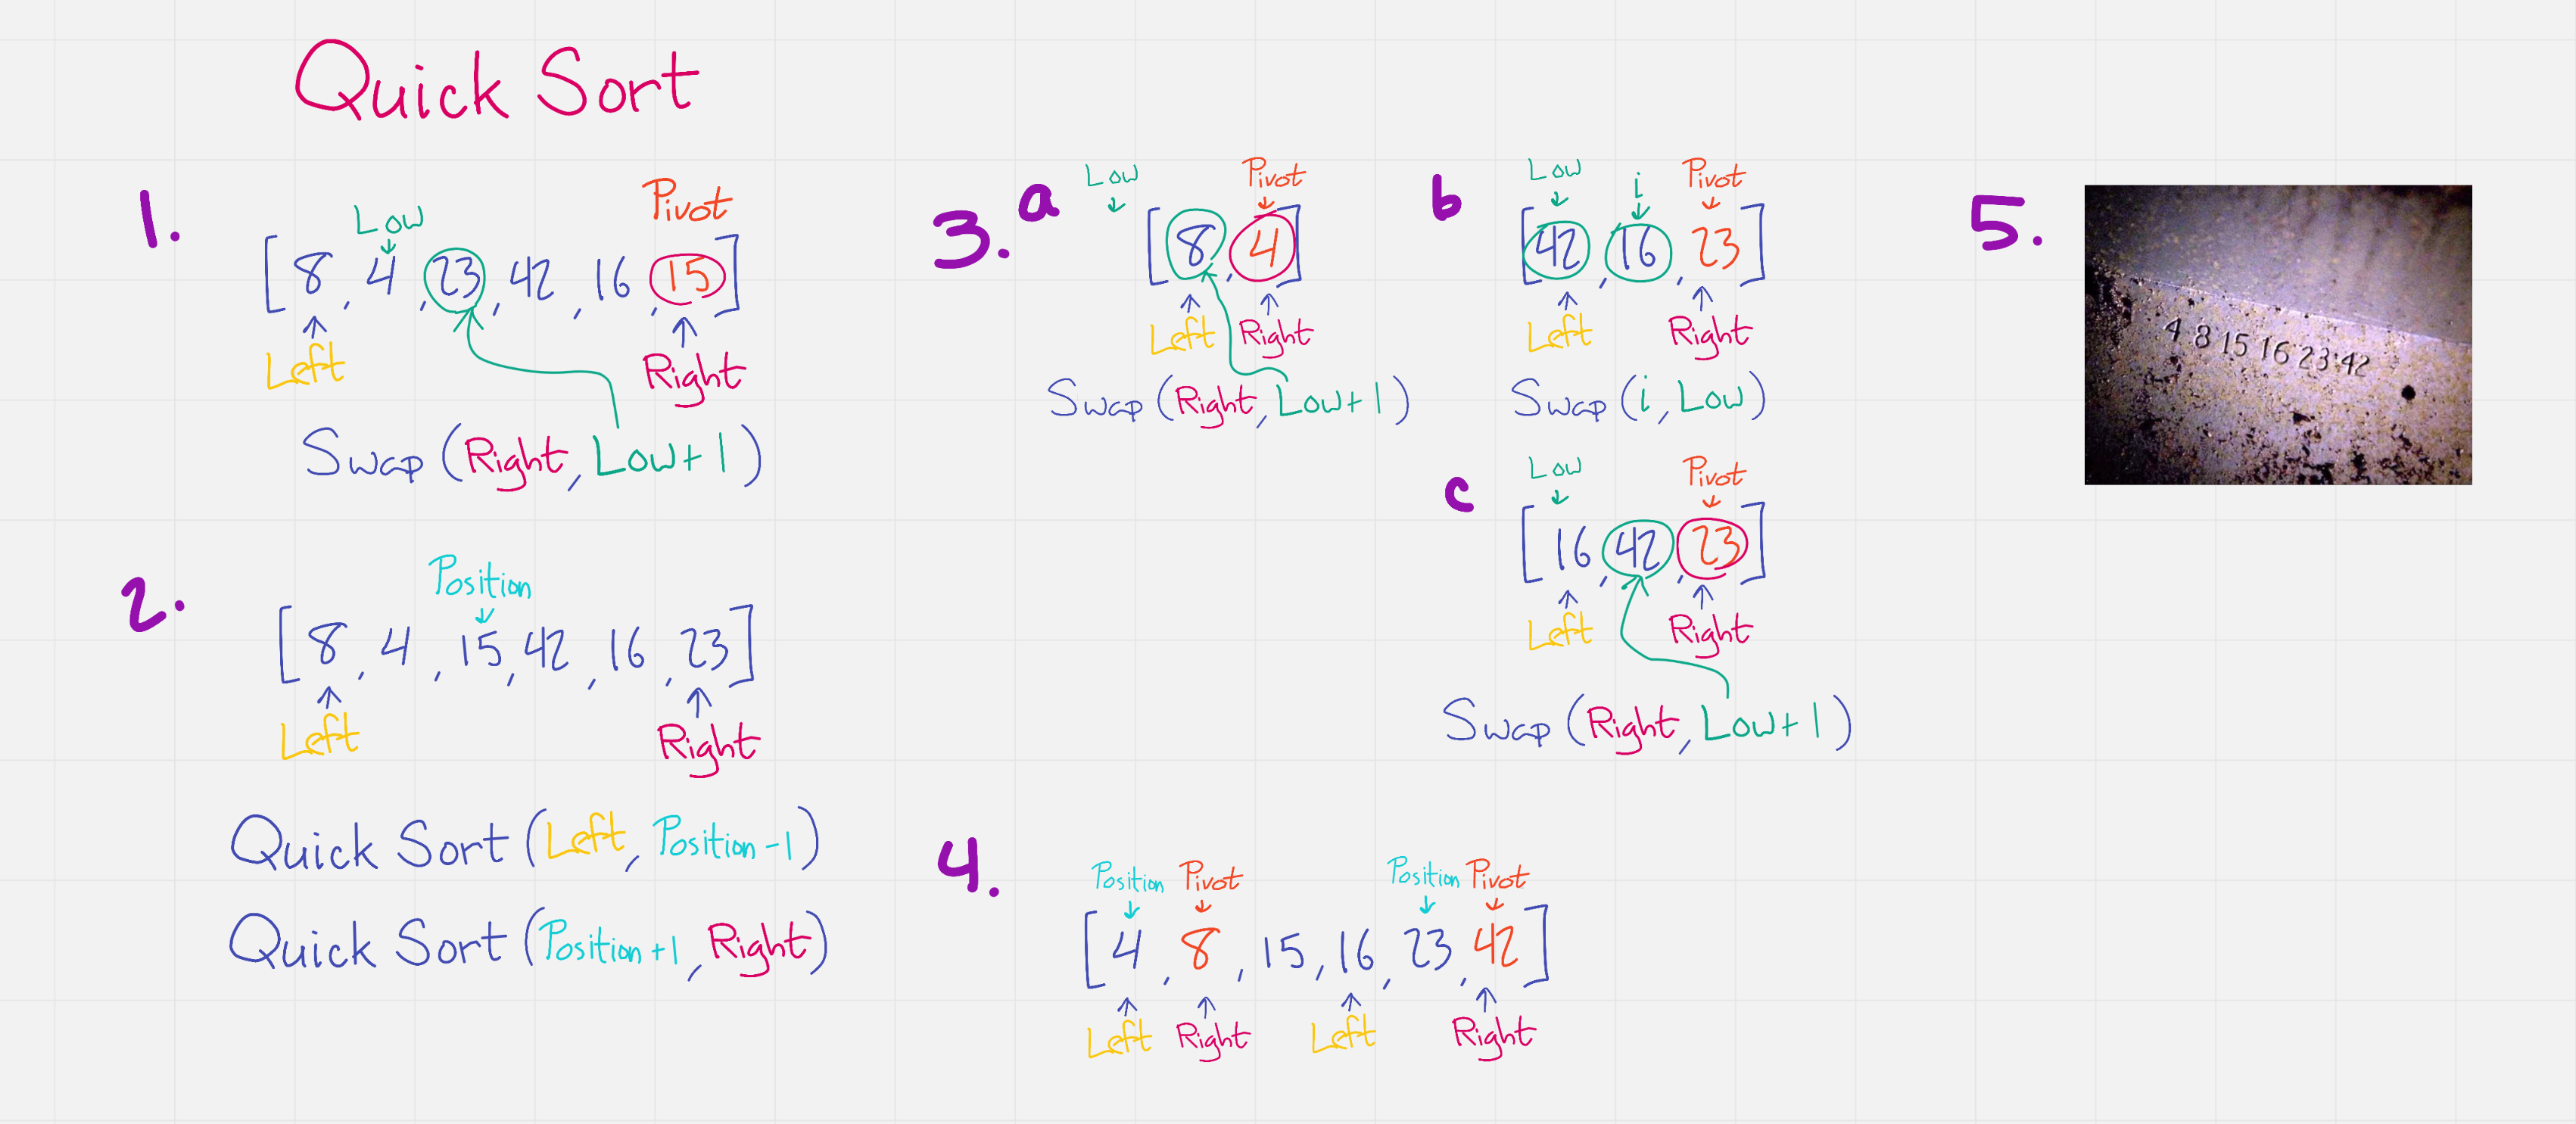 Quick Sort
1.
Low Pivot
[8, 4, 23, 42, 16, 15]
Left Right
Swap (Right, Low+1)
2.
Position
[8, 4, 15, 42, 16, 23]
Left Right
Quick Sort (Left, Position-1)
Quick Sort (Position+1, Right)
3.
a
Low Pivot
[8, 4]
Left Right
Swap (Right, Low+1)
b
Low i Pivot
[42, 16, 23]
Left Right
Swap (i, Low)
c
Low Pivot
[16, 42, 23]
Left Right
Swap (Right, Low+1)
4.
Position Pivot Position Pivot
[4, 8, 15, 16, 23, 42]
Left Right Left Right
5.
4 8 15 16 23:42